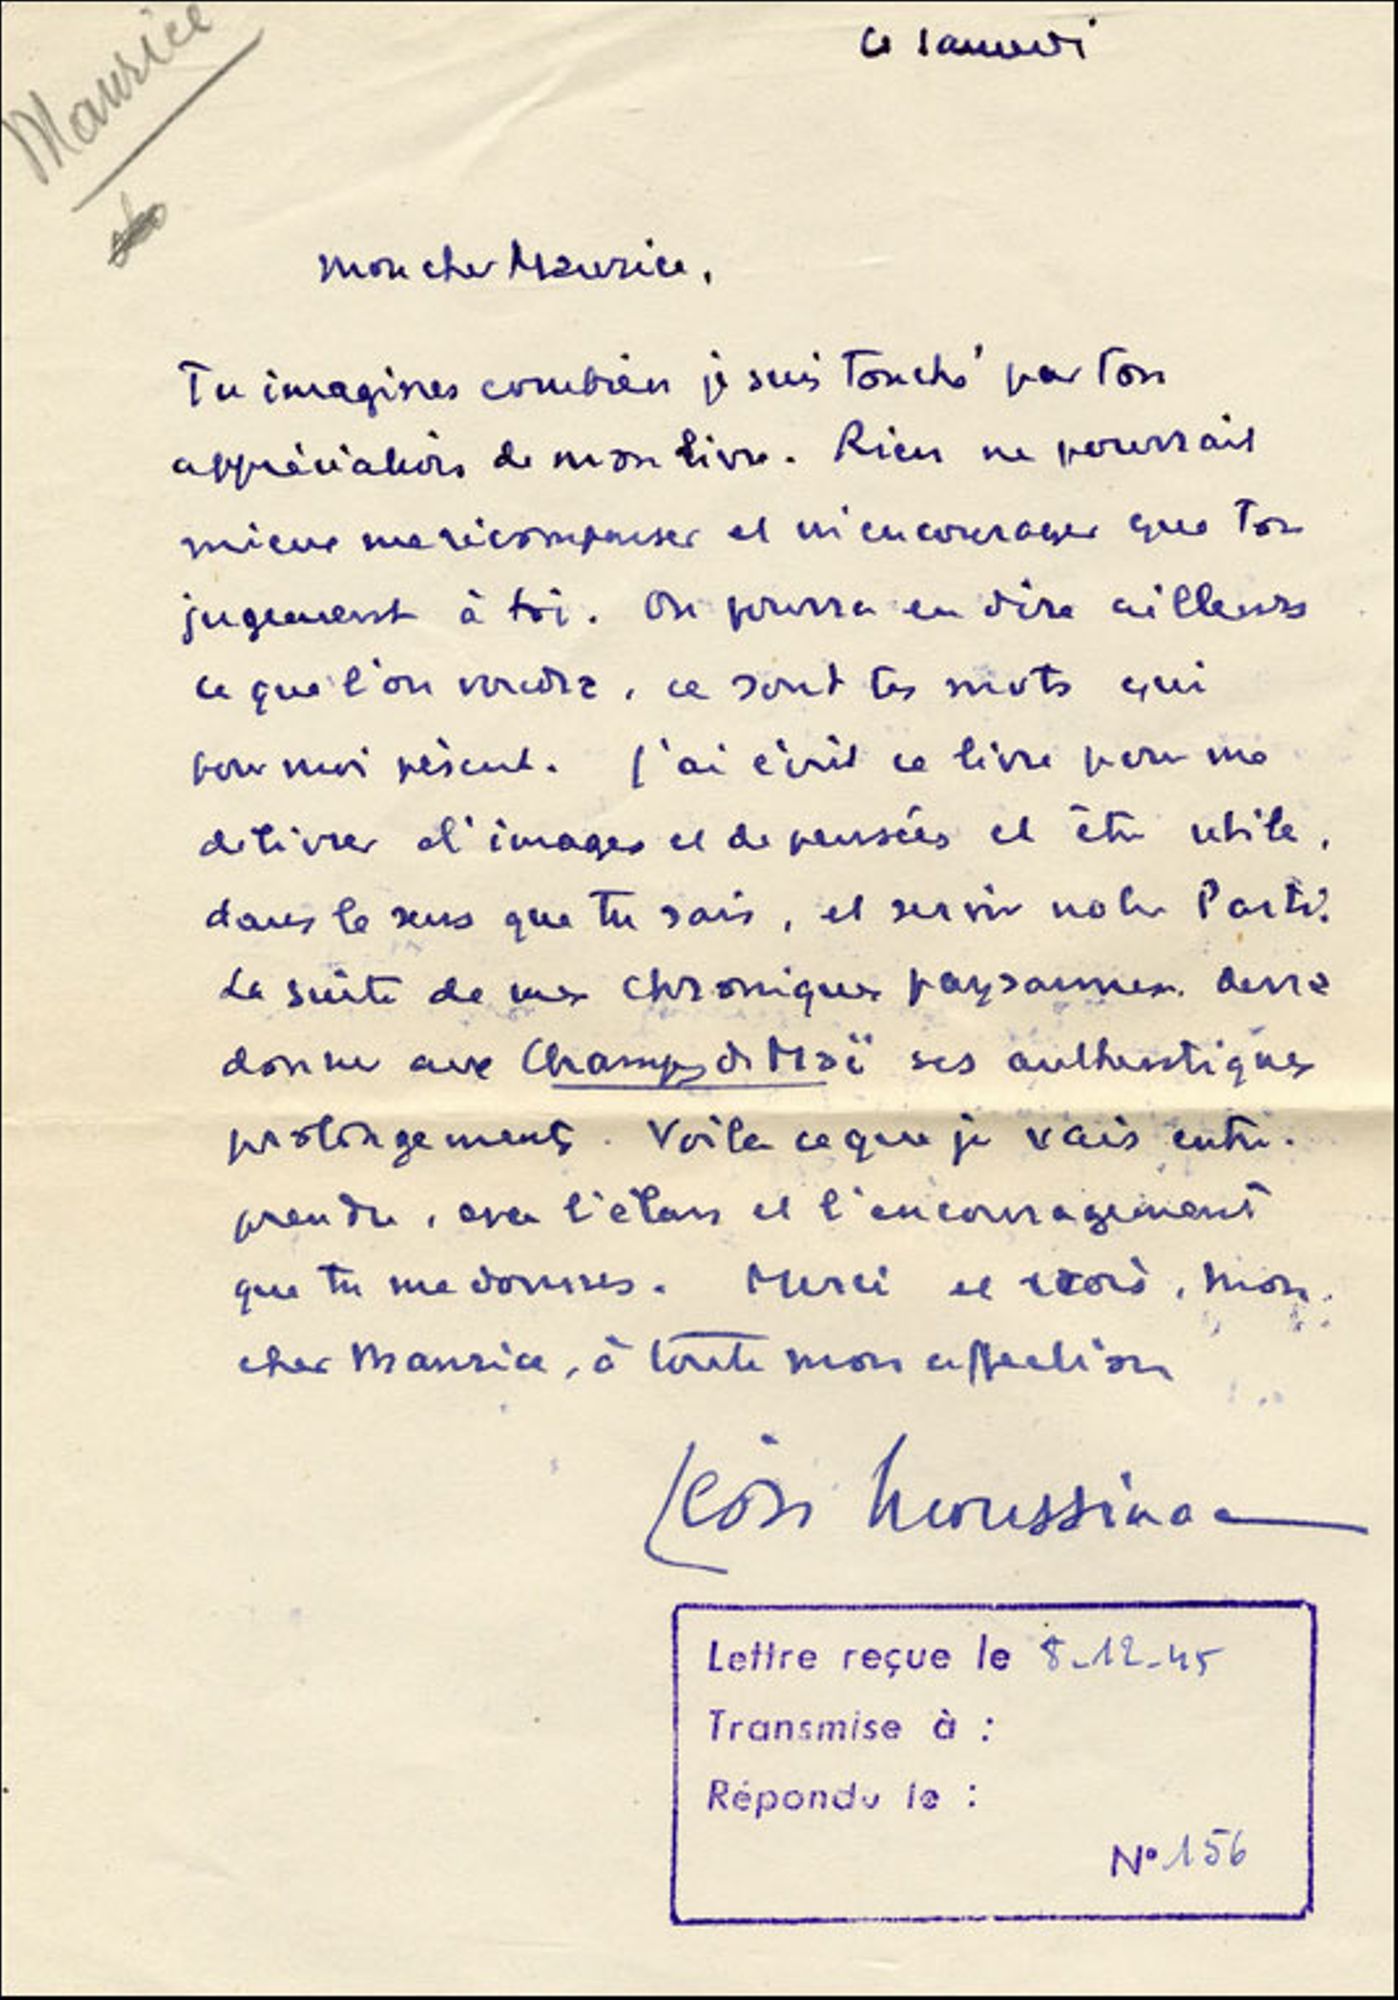 Maurice
ce samedi
Mon cher Maurice,
Tu imagines combien je suis touché par ton
appréciation de mon livre. Rien ne pourrait
mieux me récompenser et m'encourager que ton
jugement à toi. On pourra en dire ailleurs
ce que l'on voudra, ce sont tes mots qui
pour moi pèsent. J'ai écrit ce livre pour me
délivrer d'images et de pensées et être utile,
dans le sens que tu sais, et servir notre Parti.
La suite de mes chroniques paysannes devra
donner aux Champs de Moï ses authentiques
prolongements. Voilà ce que je vais entre-
prendre, avec l'élan et l'encouragement
que tu me donnes. Merci et crois, mon
cher Maurice, à toute mon affection
Léon Moussinac
Lettre reçue le 8-12-45
Transmise à :
Répondu le :
N° 156